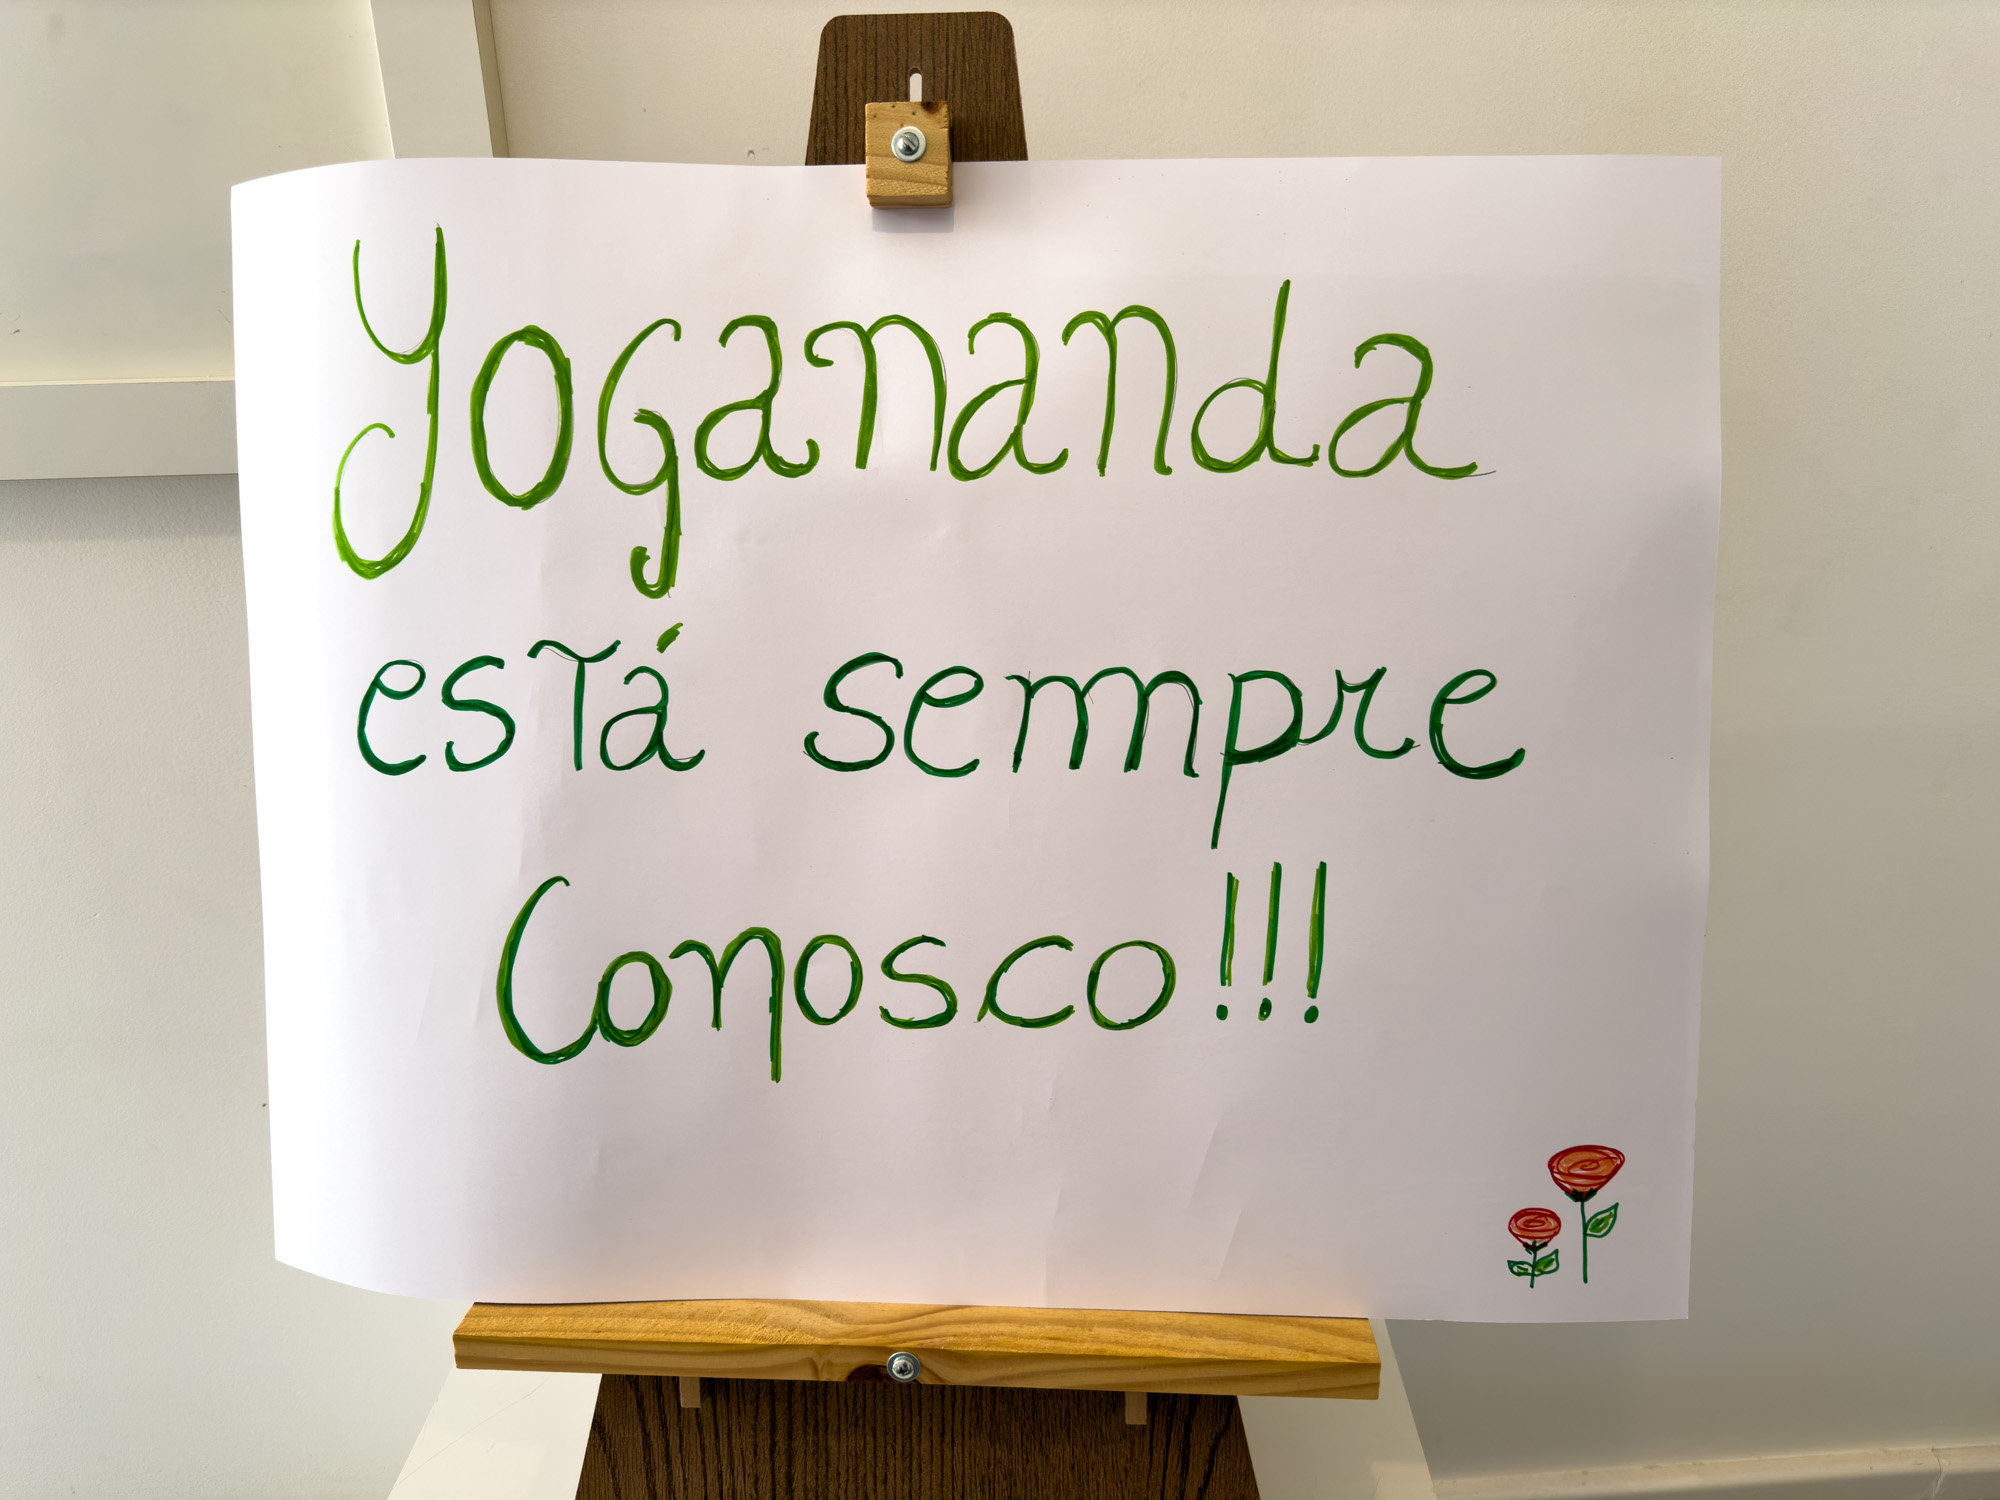 Yogananda
está sempre
Conosco!!!